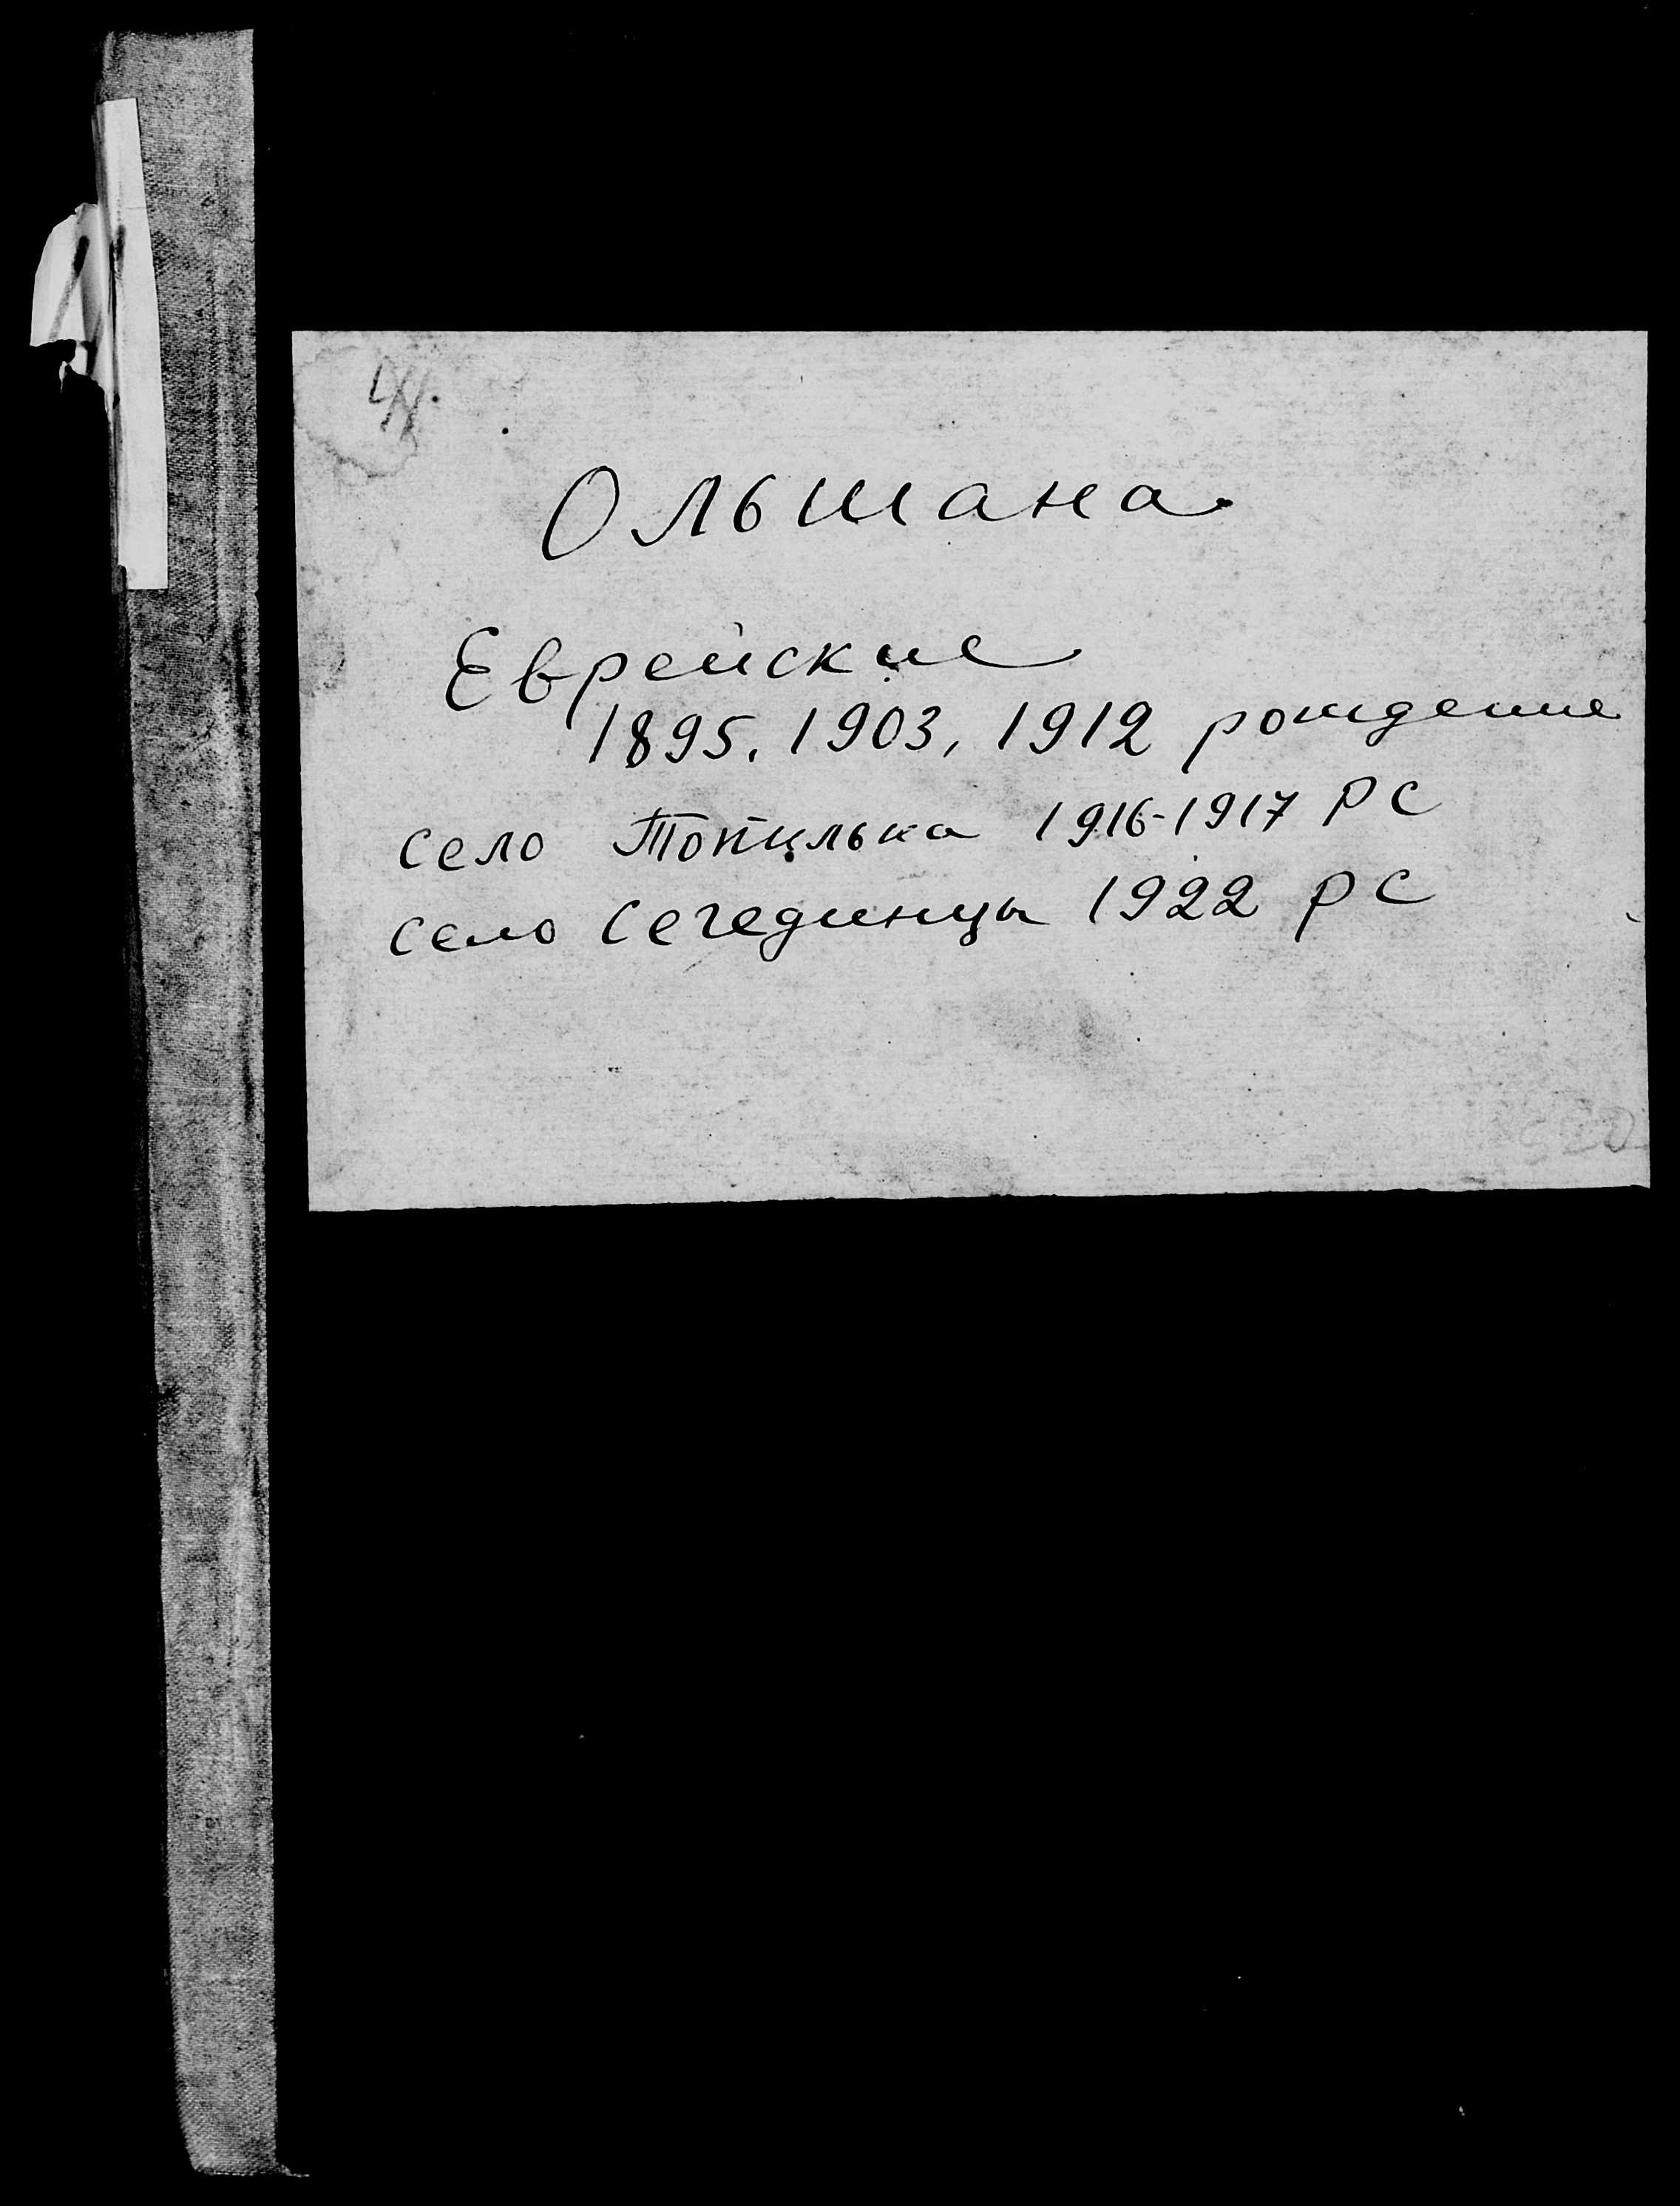 Ольшана
Еврейские
1895, 1903, 1912 рождение
село Топильна 1916-1917 РС
село Сегединцы 1922 РС